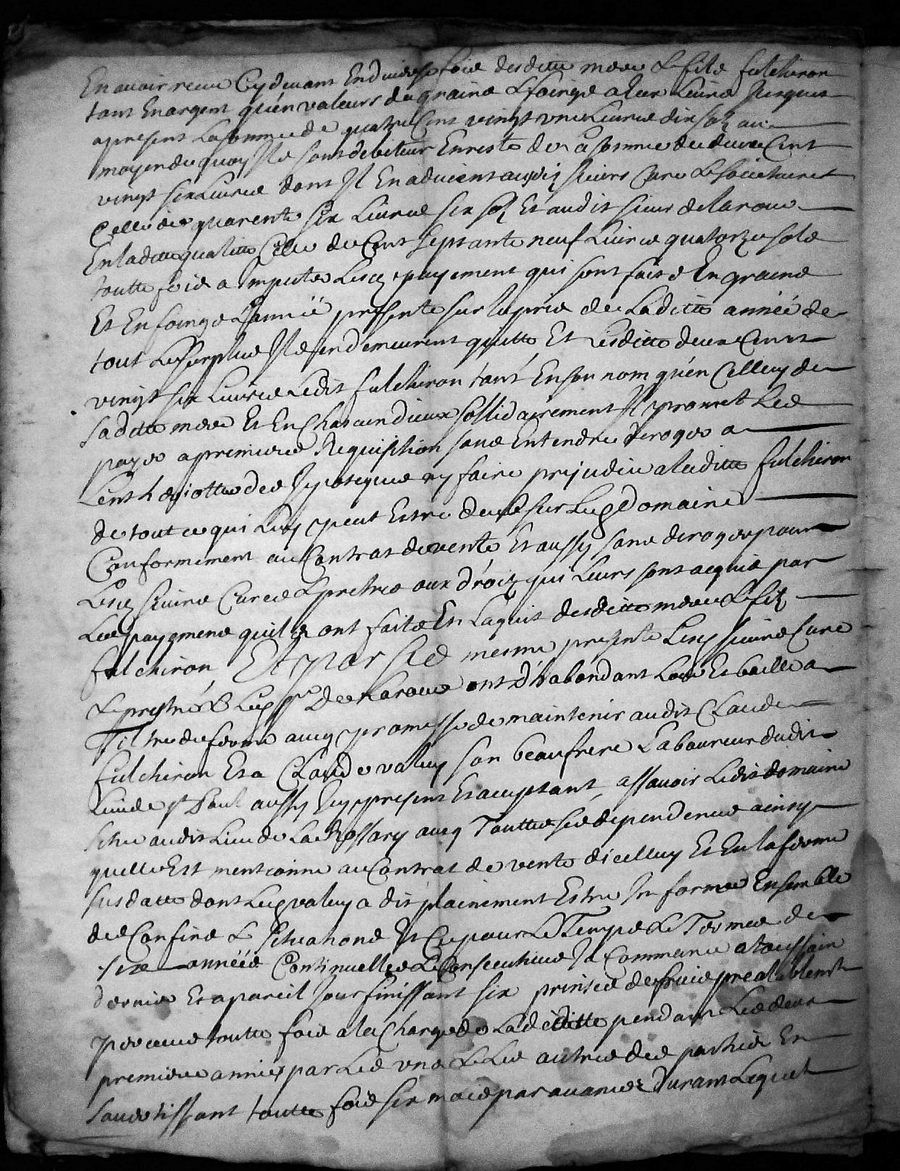 En avoir receu Cydevant En diverse fois desditte mere & fils fulchiron
tant En argent qu'en valeurs de graine & foinge a leur Livré Jusques
apresent La somme de quatre Cent vingt une Livres dix solz au
moyen de quoy Ils sont debiteur En reste de La somme de deux Cent
vingt six Livres dont Il En advient auxdiz sieurs Curé & societaires
Celle de quarente six Livres six solz Et audit sieur de Laroue
En laditte qualitte Celle de Cent septante neuf Livres quatorze sols
toutte fois a Imputer Lesq payement qui sont faits En graine
Et En foinge L'année presente sur le prix de Laditte année de
tout Le surplus Ils En demeurent quitte Et desditte deux Cent
vingt six Livres Ledit fulchiron tant En son nom qu'en Celluy de
saditte mere Et En Chascun d'ieux sollidairement Il promet Les
payer a premiere Requisition sans Entendre deroger a
L'ent hypotteque ny faire prejudice a laditte fulchiron
de tout ce qui Luy peut Estre deub sur Led Domaine
Conformement au Contrat de vente Et aussy sans deroger pour
Lesq sieurs Curé & pretres aux droiz qui Leurs sont acquis par
Les payemens qu'ils ont faits En L'aquis desditte mere & fils
fulchiron, Et par Les mesme presente Lesq sieurs Curé
& prestres & Led sr De Laroue ont D'habondant Loué Et baillé a
Tiltre de ferme aveq promesse de maintenir audit Claude
fulchiron Et a Claude valuy son beaufrere Laboureur dudit
Lieu de st Paul aussy Icy present Et acceptant, assavoir Ledit domaine
sittué audit Lieu de La Rossary aveq Toutte ses dependence ainsy
quelle Est mentionné au Contrat de vente d'icelluy Et En la ferme
susdatte dont Led valuy a dit plainement Estre Informé Ensemble
des Confins & sittuations Et Ce pour Le Temps & Terme de
six années Continuelles & Consecutive Il Commencé a Toussain
dernier Et a pareil Jour finissant six prinses de fruis prealablement
perceue toutte fois a la Charge de Laditte pendant Les deux
premiere année par Les uns & Les autres des parties En
s'avertissant toutte fois six mois par avance Durant Lequel